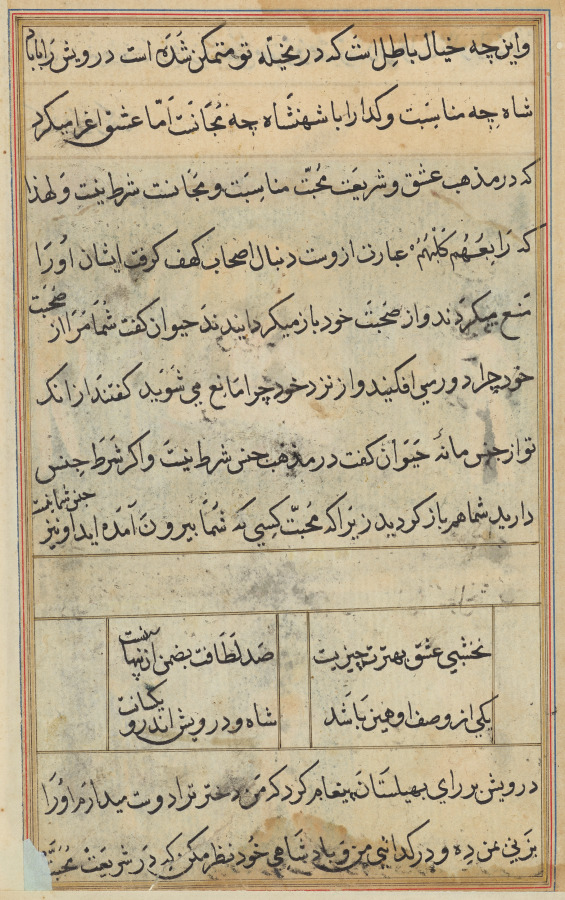 واین چه خیال باطل است که در مخیله تو متمکن شده است درویش را با
شاه چه مناسبت و کدا را با شهنشاه چه مجانست اما عشق اغرا میکرد
که در مذهب عشق و شریعت محبت مناسبت و مجانست شرط نیست و لهذا
که رابعهم کلبهم عبارت ازوست دنبال اصحاب کهف کرفت ایشان اورا
منع میکردند و از صحبت خود باز میکردانیدند حیوان کفت شما مرا از صحبت
خود چرا دور می افکنید و از نزد خود چرا مانع می شوید کفتند ازانک
تو از جنس ما نۀ حیوان کفت در مذهب جنس شرط نیست واکر شرط جنس
دارید شما هم باز کردید زیراکه محبت کسی که شما بیرون آمده اید او نیز جنس شما نیست
نخشبی عشق بهترت چیزیست صد لطافت بضمن آن نهانست
یکی از وصف او همین باشد شاه و درویش اندرو یکانست
درویش بر رای بهیلستان پیغام کرد که من دختر ترا دوست میدارم اورا
بزنی بمن ده و در کدائی من و پادشاهی خود نظر مکن که در شریعت محبت